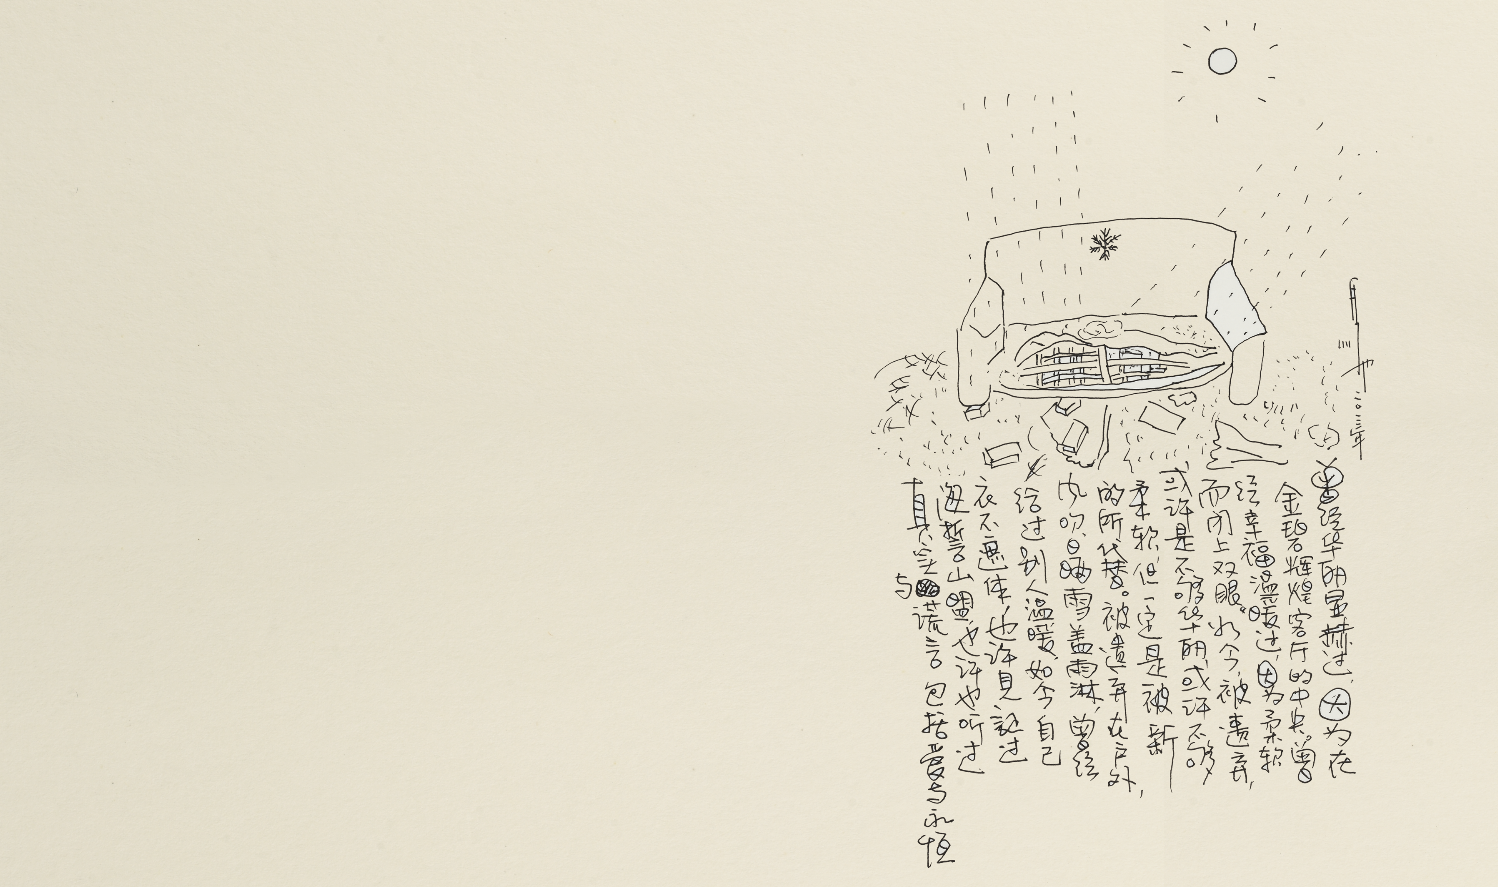 曾经华丽显赫过，因为在
金碧辉煌客厅的中央。曾
经幸福温暖过，因为柔软
而闭上双眼。如今，被遗弃，
或许是不够华丽，或许不够
柔软，但一定是被新
的所代替。被遗弃在户外，
风吹日晒雪盖雨淋，曾经
给过别人温暖，如今自己
衣不遮体，也许见证过
海誓山盟，也许也听过
真实与谎言包括爱与永恒
二〇二三年